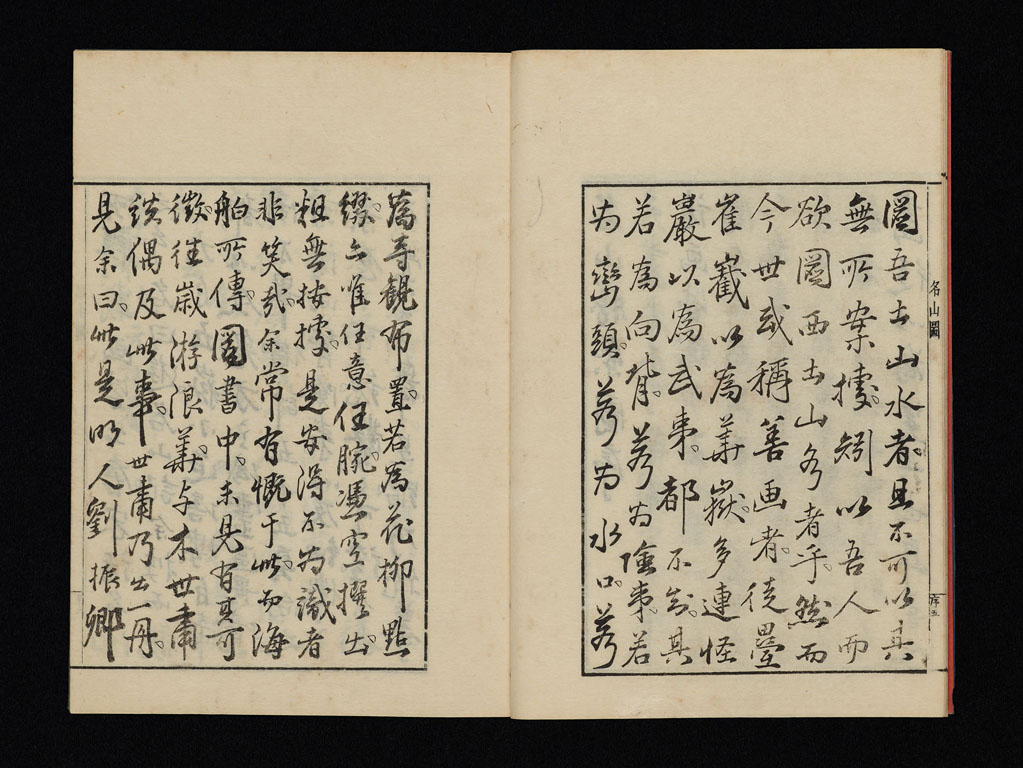 圖吾土山水者且不可以真
無所案據矧以吾人而
欲圖西土山者乎然而
今世或稱善画者徒壘
崔嶻以為華嶽多連怪
巖以為武夷都不知其
若為向背若為陰夷若
為巒頭若為水口若
為寺觀布置若為花柳點
綴亦唯任意任腕憑空撰出
粗無按據是安得不為識者
非笑哉余常有慨于此而海
舶所傳圖書中未見有可
徵往歲游浪華与木世肅
談偶及此事世肅乃出一冊
見余曰此是明人劉振卿
名山圖
序五